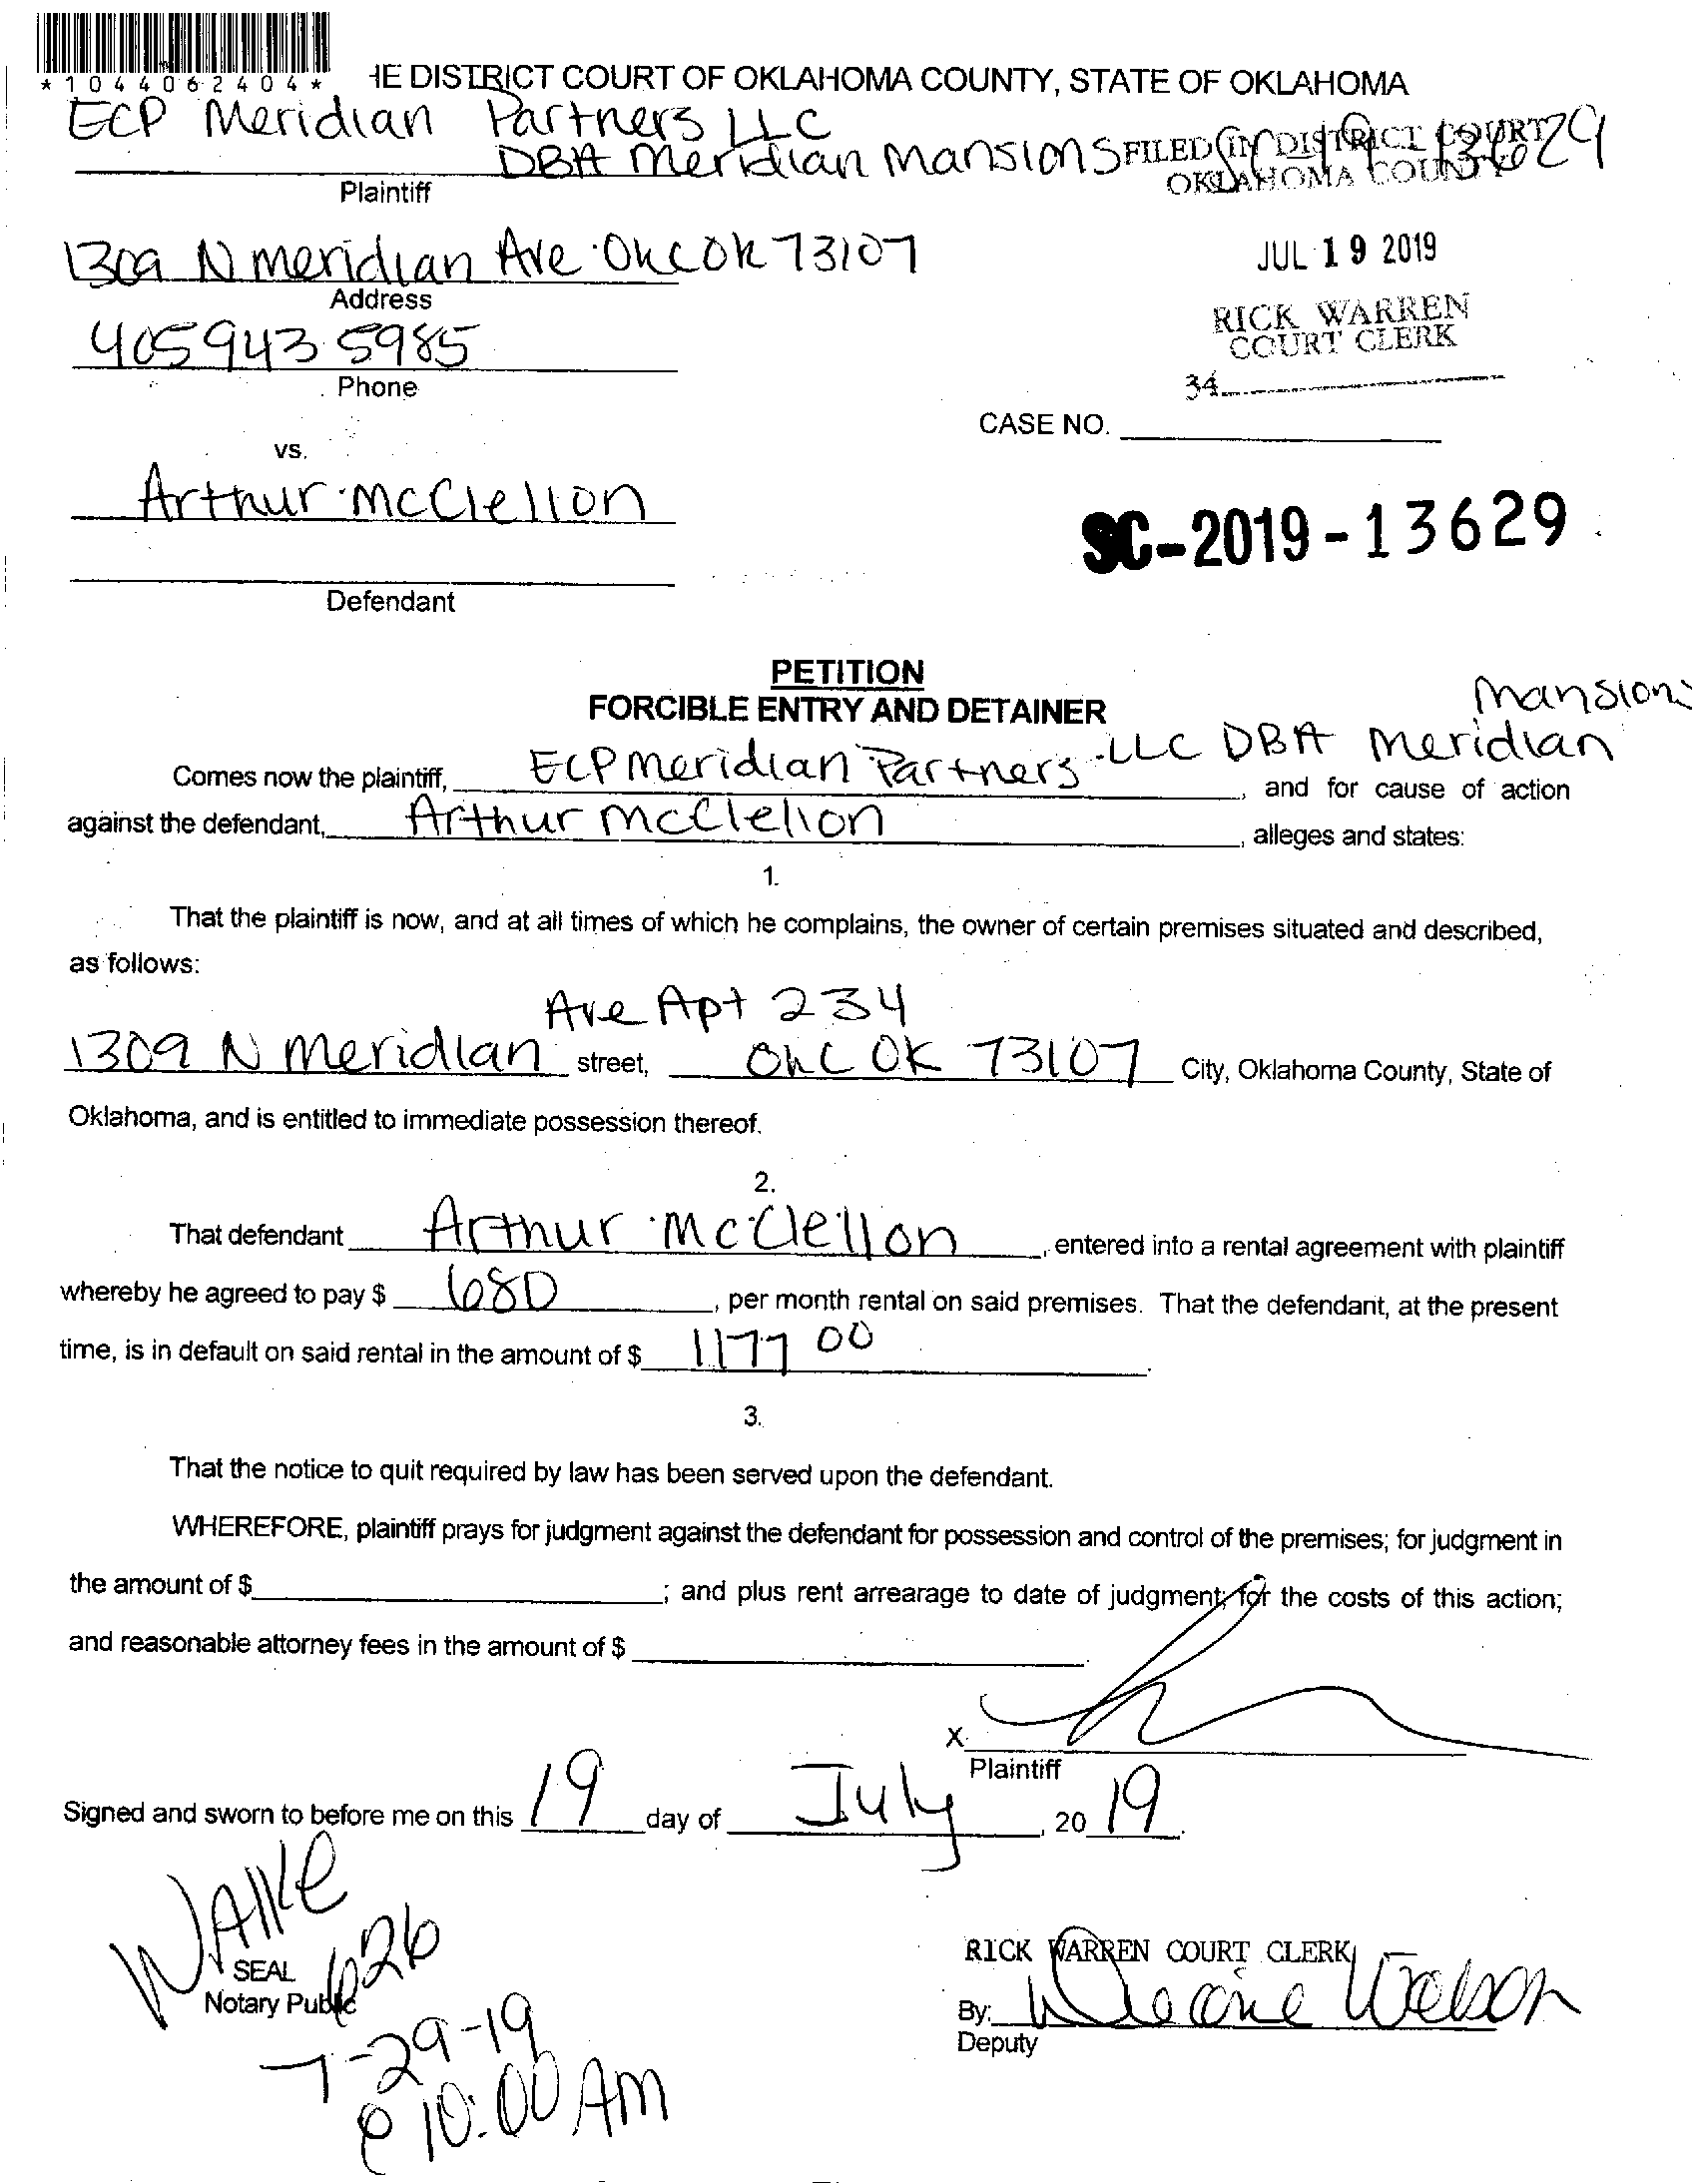 *1044062404*
HE DISTRICT COURT OF OKLAHOMA COUNTY, STATE OF OKLAHOMA
ECP Meridian Partners LLC
DBA Meridian Mansions
FILED IN DISTRICT COURT
OKLAHOMA COUNTY
SC 19 13629
Plaintiff
1309 N Meridian Ave OKC OK 73107
JUL 19 2019
Address
RICK WARREN
COURT CLERK
405 943 5985
34
Phone
CASE NO.
vs.
Arthur McClellon
SC-2019-13629
Defendant
PETITION
FORCIBLE ENTRY AND DETAINER
Mansions
Comes now the plaintiff, ECP Meridian Partners LLC DBA Meridian, and for cause of action
against the defendant, Arthur McClellon, alleges and states:
1.
That the plaintiff is now, and at all times of which he complains, the owner of certain premises situated and described,
as follows:
Ave Apt 234
1309 N Meridian street, OKC OK 73107 City, Oklahoma County, State of
Oklahoma, and is entitled to immediate possession thereof.
2.
That defendant Arthur McClellon, entered into a rental agreement with plaintiff
whereby he agreed to pay $ 680, per month rental on said premises. That the defendant, at the present
time, is in default on said rental in the amount of $ 1177 00.
3.
That the notice to quit required by law has been served upon the defendant.
WHEREFORE, plaintiff prays for judgment against the defendant for possession and control of the premises; for judgment in
the amount of $; and plus rent arrearage to date of judgment; for the costs of this action;
and reasonable attorney fees in the amount of $.
X
Plaintiff
Signed and sworn to before me on this 19 day of July, 20 19.
WAlke
626
SEAL
Notary Public
7-29-19
@ 10:00 AM
RICK WARREN COURT CLERK
By:
Deputy